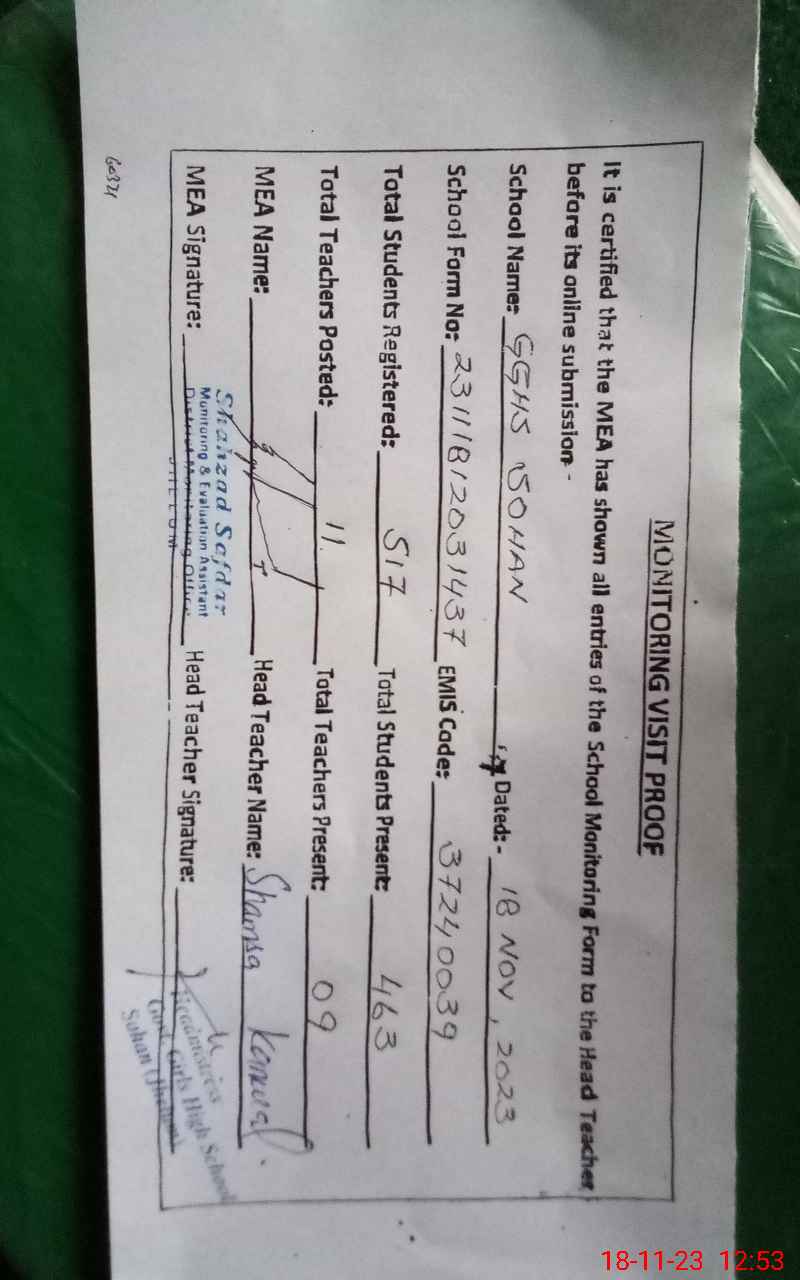 MONITORING VISIT PROOF
It is certified that the MEA has shown all entries of the School Monitoring Form to the Head Teacher
before its online submission -
School Name: GGHS SOHAN Dated: - 18 NOV, 2023
School Form No: 23111812031437 EMIS Code: 37240039
Total Students Registered: 517 Total Students Present: 463
Total Teachers Posted: 11 Total Teachers Present: 09
MEA Name: Head Teacher Name: Shamsa Kanwal
Shahzad Safdar
Monitoring & Evaluation Assistant
District Monitoring Office
JHELUM
MEA Signature: Head Teacher Signature:
Headmistress
Govt. Girls High School
Sohan (Jhelum)
60321
18-11-23 12:53